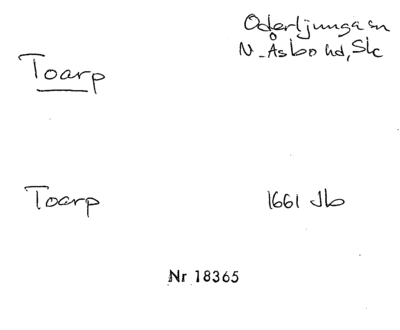 Oderljunga sn
Toarp
N. Åsbo hd, Sk
Toarp
1661 Jb
Nr 18365